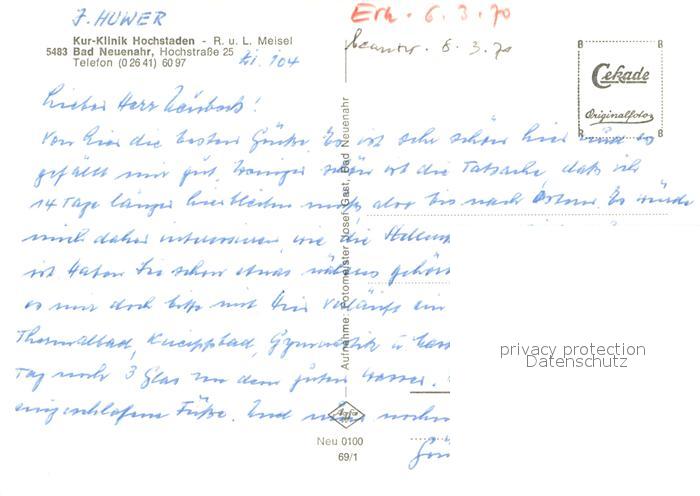 J. HUWER
Erh. 6.3.70
Kur-Klinik Hochstaden - R. u. L. Meisel
5483 Bad Neuenahr, Hochstraße 25
Telefon (0 26 41) 60 97
Zi. 104
Beantw. 6.3.70
Cekade
Originalfoto
Lieber Herr
Von hier die besten Grüße. Es ist sehr schön hier und es
gefällt mir gut. Weniger schön ist die Tatsache, daß ich
14 Tage länger hierbleiben muß, also bis nach Ostern. Es würde
mich daher interessieren, wie die
ist. Haben Sie schon etwas näheres gehört
es mir doch bitte mit. Hier verläuft ein
Thermalbad, Kneippbad, Gymnastik u.
Tag noch 3 Glas von dem guten Wasser.
eingeschlafene Füße. Und
Aufnahme: Fotomeister Josef Gast, Bad Neuenahr
Agfa
Neu 0100
69/1
privacy protection
Datenschutz